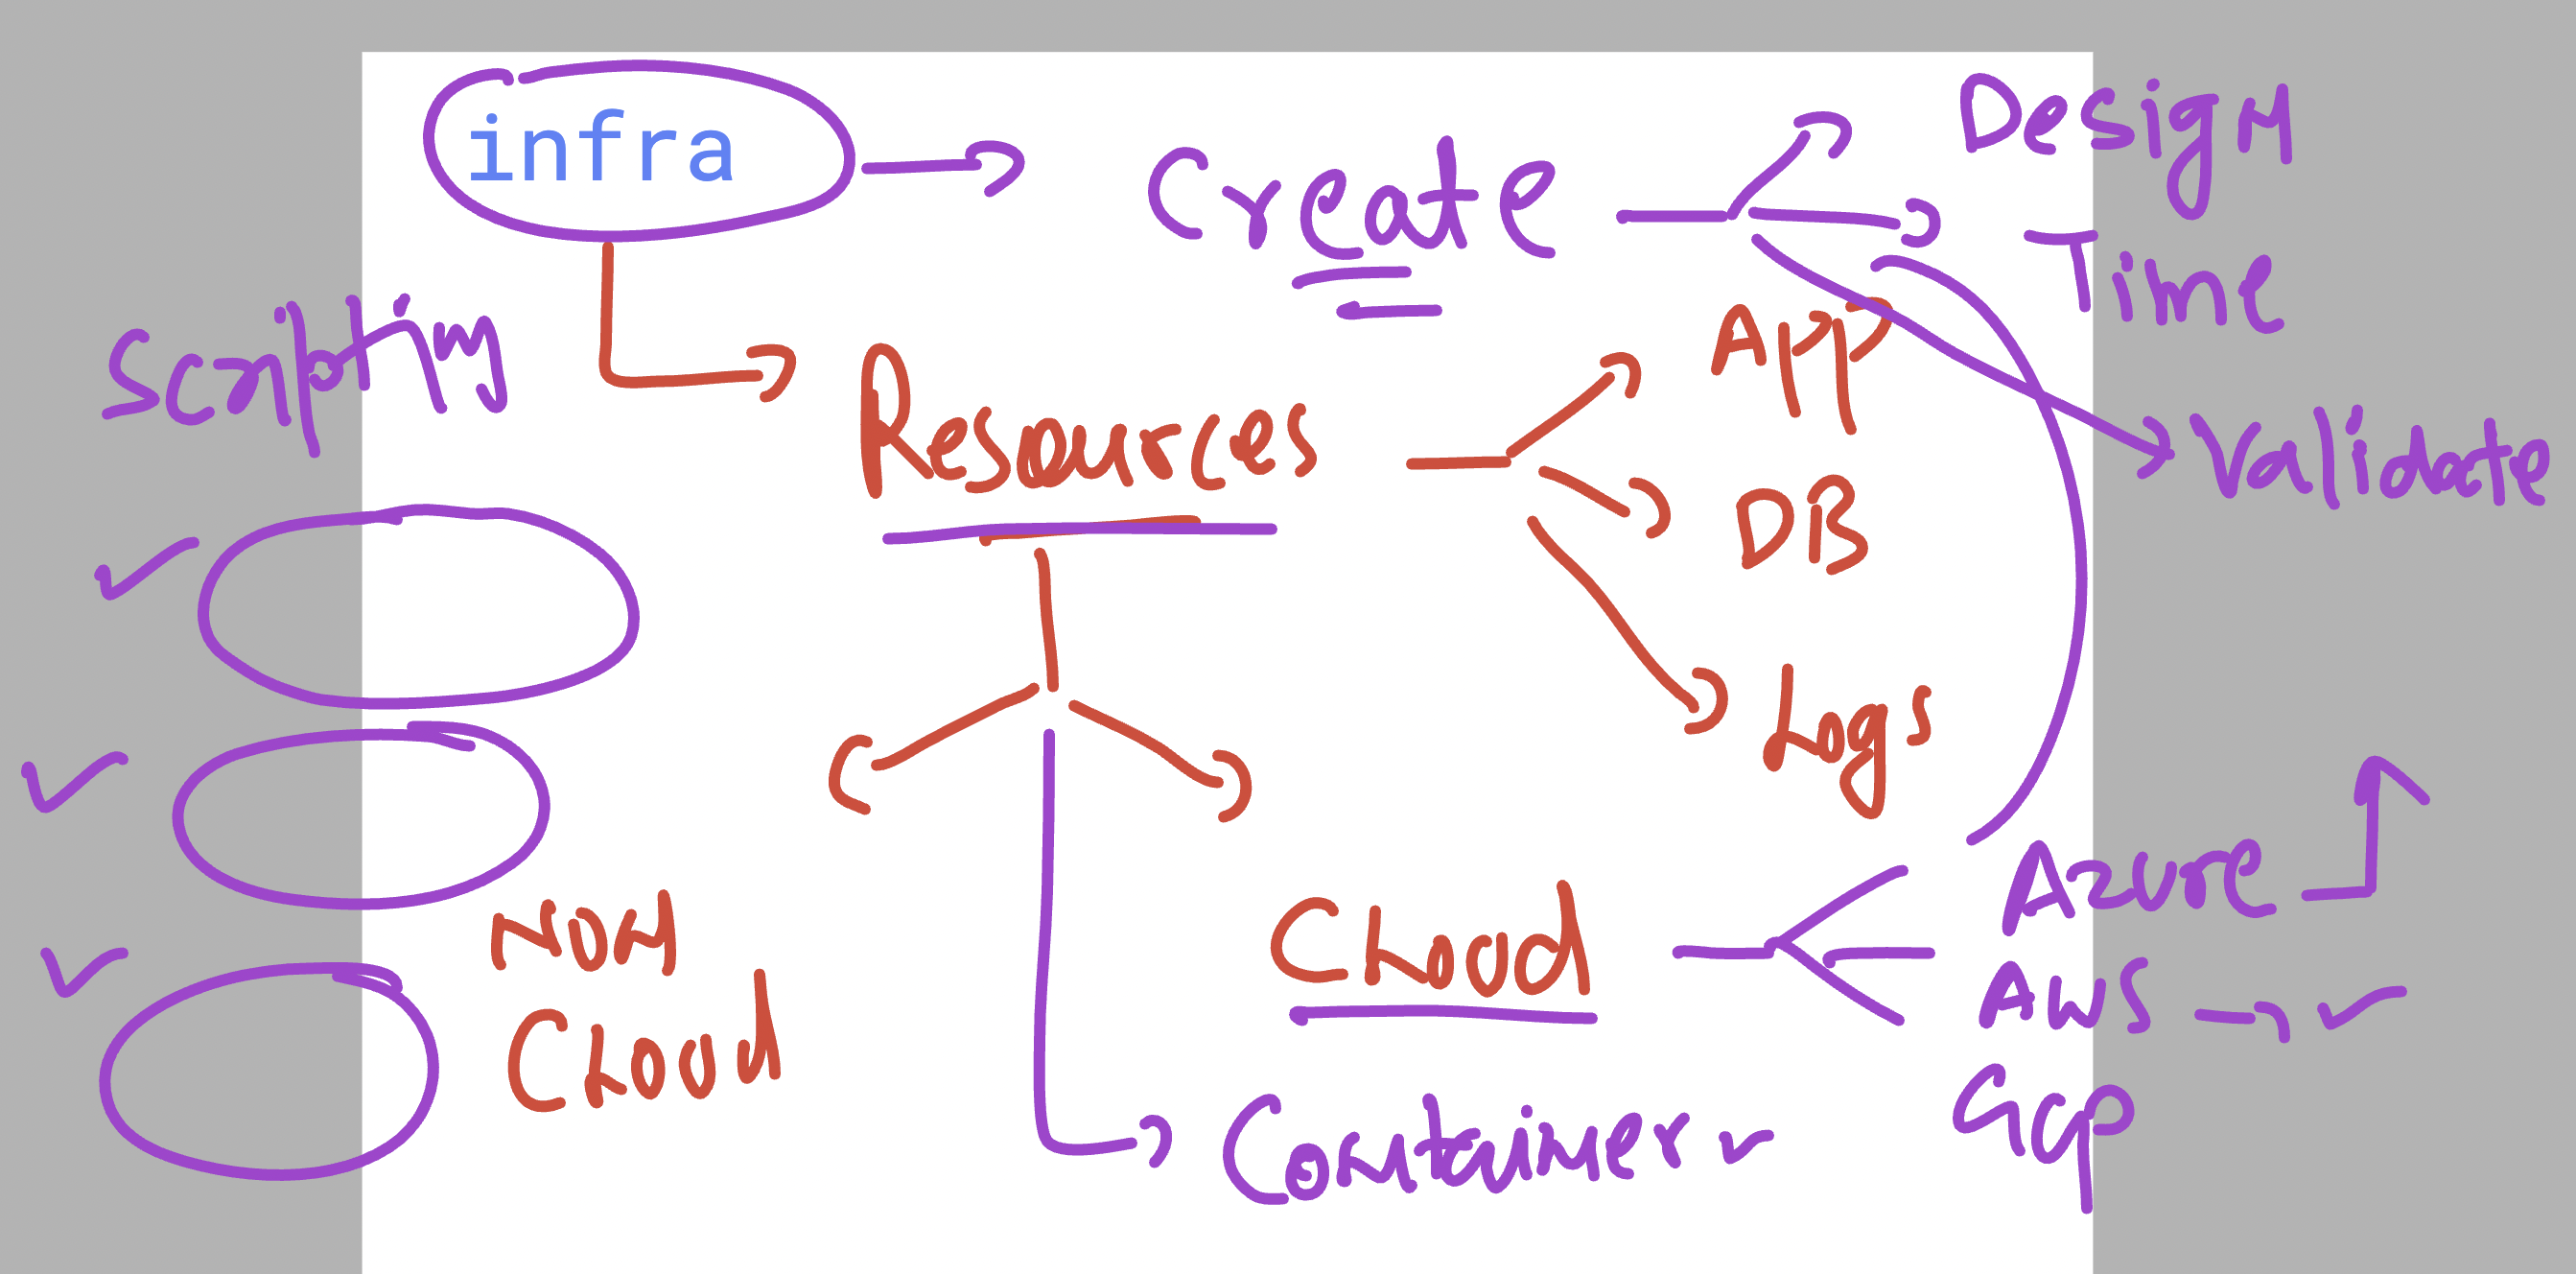 infra
Create
Design
Time
Scripting
Resources
App
Validate
DB
Logs
Non
Cloud
Cloud
Azure
AWS
Gcp
Container